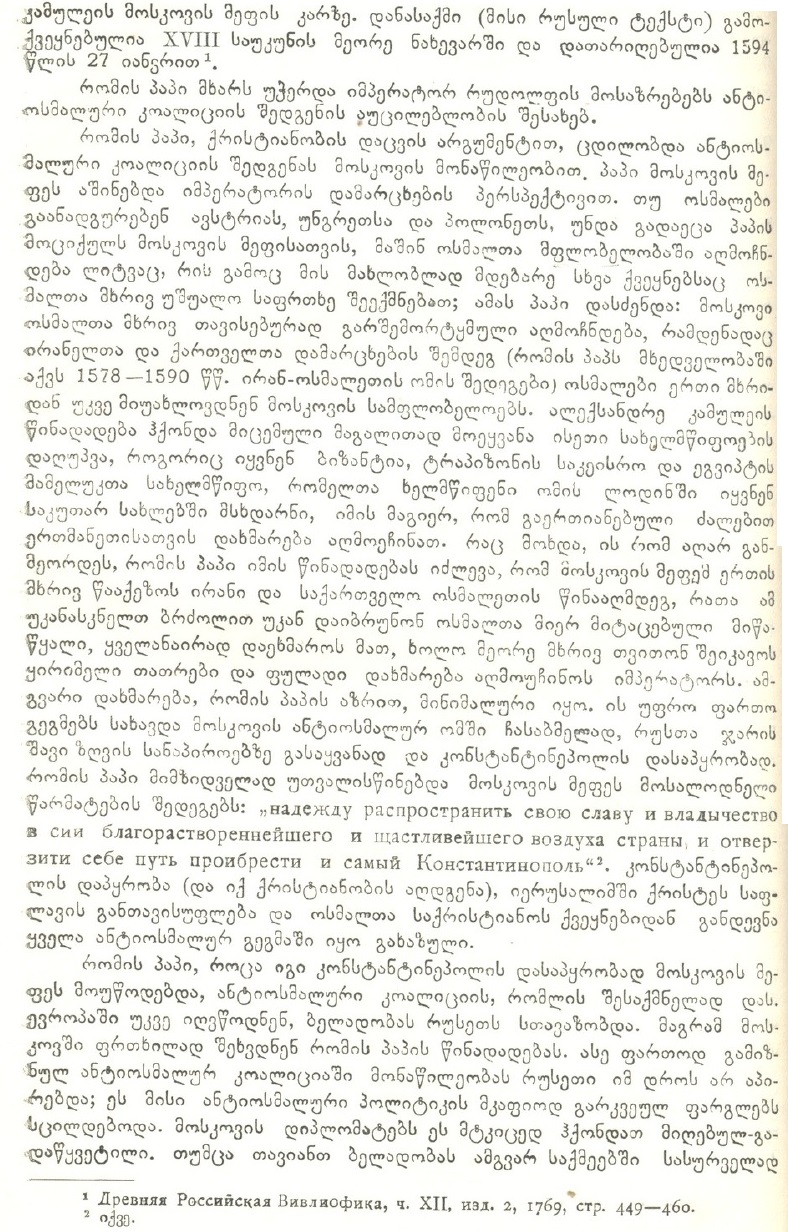 კამულეის მოსკოვის მეფის კარზე. დანასაქმი (მისი რუსული ტექსტი) გამო-
ქვეყნებულია XVIII საუკუნის მეორე ნახევარში და დათარიღებულია 1594
წლის 27 იანვრით¹.
რომის პაპი მხარს უჭერდა იმპერატორ რუდოლფის მოსაზრებებს ანტი-
ოსმალური კოალიციის შედგენის აუცილებლობის შესახებ.
რომის პაპი, ქრისტიანობის დაცვის არგუმენტით, ცდილობდა ანტიოს-
მალური კოალიციის შედგენას მოსკოვის მონაწილეობით. პაპი მოსკოვის მე-
ფეს აშინებდა იმპერატორის დამარცხების პერსპექტივით. თუ ოსმალები
გაანადგურებენ ავსტრიას, უნგრეთსა და პოლონეთს, უნდა გადაეცა პაპის
მოციქულს მოსკოვის მეფისათვის, მაშინ ოსმალთა მფლობელობაში აღმოჩნ-
დება ლიტვაც, რის გამოც მის მახლობლად მდებარე სხვა ქვეყნებსაც ოს-
მალთა მხრივ უშუალო საფრთხე შეექმნებათ; ამას პაპი დასძენდა: მოსკოვი
ოსმალთა მხრივ თავისებურად გარშემორტყმული აღმოჩნდება, რამდენადაც
ირანელთა და ქართველთა დამარცხების შემდეგ (რომის პაპს მხედველობაში
აქვს 1578—1590 წწ. ირან-ოსმალეთის ომის შედეგები) ოსმალები ერთი მხრი-
დან უკვე მიუახლოვდნენ მოსკოვის სამფლობელოებს. ალექსანდრე კამულეის
წინადადება ჰქონდა მიცემული მაგალითად მოეყვანა ისეთი სახელმწიფოების
დაღუპვა, როგორიც იყვნენ ბიზანტია, ტრაპიზონის საკეისრო და ეგვიპტის
მამელუკთა სახელმწიფო, რომელთა ხელმწიფენი ომის ლოდინში იყვნენ
საკუთარ სახლებში მსხდარნი, იმის მაგიერ, რომ გაერთიანებული ძალებით
ერთმანეთისათვის დახმარება აღმოეჩინათ. რაც მოხდა, ის რომ აღარ გან-
მეორდეს, რომის პაპი იმის წინადადებას იძლევა, რომ მოსკოვის მეფემ ერთის
მხრივ წააქეზოს ირანი და საქართველო ოსმალეთის წინააღმდეგ, რათა ამ
უკანასკნელთ ბრძოლით უკან დაიბრუნონ ოსმალთა მიერ მიტაცებული მიწა-
წყალი, ყველანაირად დაეხმაროს მათ, ხოლო მეორე მხრივ თვითონ შეიკავოს
ყირიმელი თათრები და ფულადი დახმარება აღმოუჩინოს იმპერატორს. ამ-
გვარი დახმარება, რომის პაპის აზრით, მინიმალური იყო. ის უფრო ფართო
გეგმებს სახავდა მოსკოვის ანტიოსმალურ ომში ჩასაბმელად, რუსთა ჯარის
შავი ზღვის სანაპიროებზე გასაყვანად და კონსტანტინეპოლის დასაპყრობად.
რომის პაპი მიმზიდველად უთვალისწინებდა მოსკოვის მეფეს მოსალოდნელი
წარმატების შედეგებს: „надежду распространить свою славу и владычество
в сии благораствореннейшего и щастливейшего воздуха страны, и отвер-
зити себе путь проибрести и самый Константинополь“². კონსტანტინეპო-
ლის დაპყრობა (და იქ ქრისტიანობის აღდგენა), იერუსალიმში ქრისტეს საფ-
ლავის განთავისუფლება და ოსმალთა საქრისტიანოს ქვეყნებიდან განდევნა
ყველა ანტიოსმალურ გეგმაში იყო გახაზული.
რომის პაპი, როცა იგი კონსტანტინეპოლის დასაპყრობად მოსკოვის მე-
ფეს მოუწოდებდა, ანტიოსმალური კოალიციის, რომლის შესაქმნელად დას.
ევროპაში უკვე იღვწოდნენ, ბელადობას რუსეთს სთავაზობდა. მაგრამ მოს-
კოვში ფრთხილად შეხვდნენ რომის პაპის წინადადებას. ასე ფართოდ გამიზ-
ნულ ანტიოსმალურ კოალიციაში მონაწილეობას რუსეთი იმ დროს არ აპი-
რებდა; ეს მისი ანტიოსმალური პოლიტიკის მკაფიოდ გარკვეულ ფარგლებს
სცილდებოდა. მოსკოვის დიპლომატებს ეს მტკიცედ ჰქონდათ მიღებულ-გა-
დაწყვეტილი. თუმცა თავიანთ ბელადობას ამგვარ საქმეებში სასურველად
¹ Древняя Российская Вивлиофика, ч. XII, изд. 2, 1769, стр. 449—460.
² იქვე.